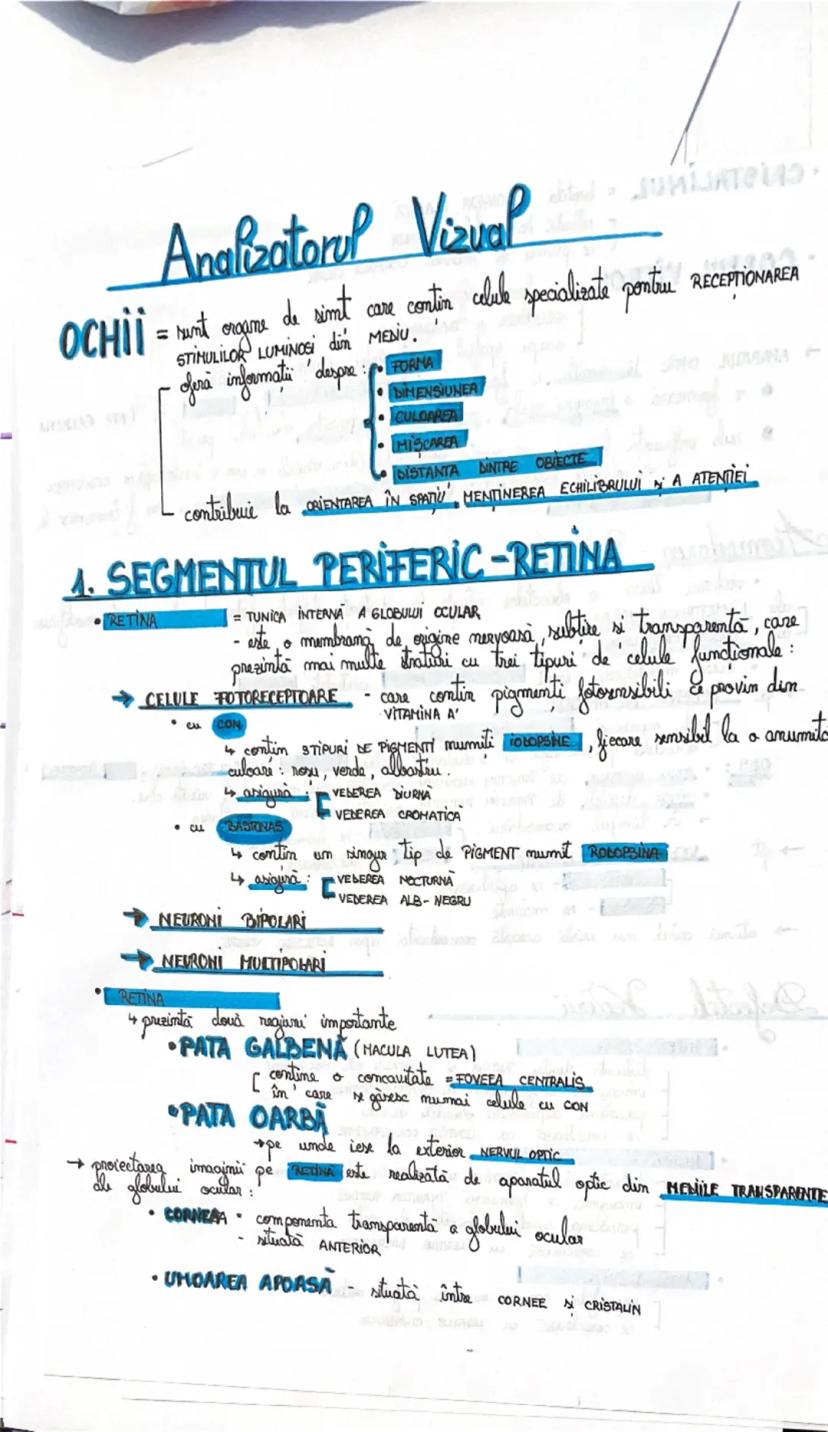 Analizatorul Vizual
OCHII = sunt organe de simt care contin celule specializate pentru RECEPȚIONAREA
STIMULILOR LUMINOSI din MEDIU.
oferă informații despre:
• FORMA
• DIMENSIUNEA
• CULOAREA
• MIȘCAREA
• DISTANTA DINTRE OBIECTE
contribuie la ORIENTAREA ÎN SPAȚIU, MENȚINEREA ECHILIBRULUI și A ATENȚIEI
1. SEGMENTUL PERIFERIC - RETINA
• RETINA = TUNICA INTERNĂ A GLOBULUI OCULAR
- este o membrană de origine nervoasă, subțire si transparentă, care
prezintă mai multe straturi cu trei tipuri de celule funcționale:
→ CELULE FOTORECEPTOARE - care contin pigmenți fotosensibili ce provin din
VITAMINA A
• cu CON
↳ contin 3 TIPURI DE PIGMENTI numiti IODOPSINE, fiecare sensibil la o anumită
culoare: rosu, verde, albastru.
↳ asigură: VEDEREA DIURNĂ
VEDEREA CROMATICĂ
• cu BASTONAS
↳ contin un singur tip de PIGMENT numit RODOPSINA
↳ asigură: VEDEREA NOCTURNĂ
VEDEREA ALB-NEGRU
→ NEURONI BIPOLARI
→ NEURONI MULTIPOLARI
• RETINA
↳ prezintă două regiuni importante
• PATA GALBENĂ (MACULA LUTEA)
contine o concavitate = FOVEEA CENTRALIS
în care se găsesc numai celule cu CON
• PATA OARBĂ
→ pe unde iese la exterior NERVUL OPTIC
→ proiectarea imaginii pe RETINĂ este realizată de aparatul optic din MEDIILE TRANSPARENTE
ale globului ocular:
• CORNEEA • componenta transparentă a globului ocular
- situată ANTERIOR
• UMOAREA APOASĂ - situată între CORNEE și CRISTALIN